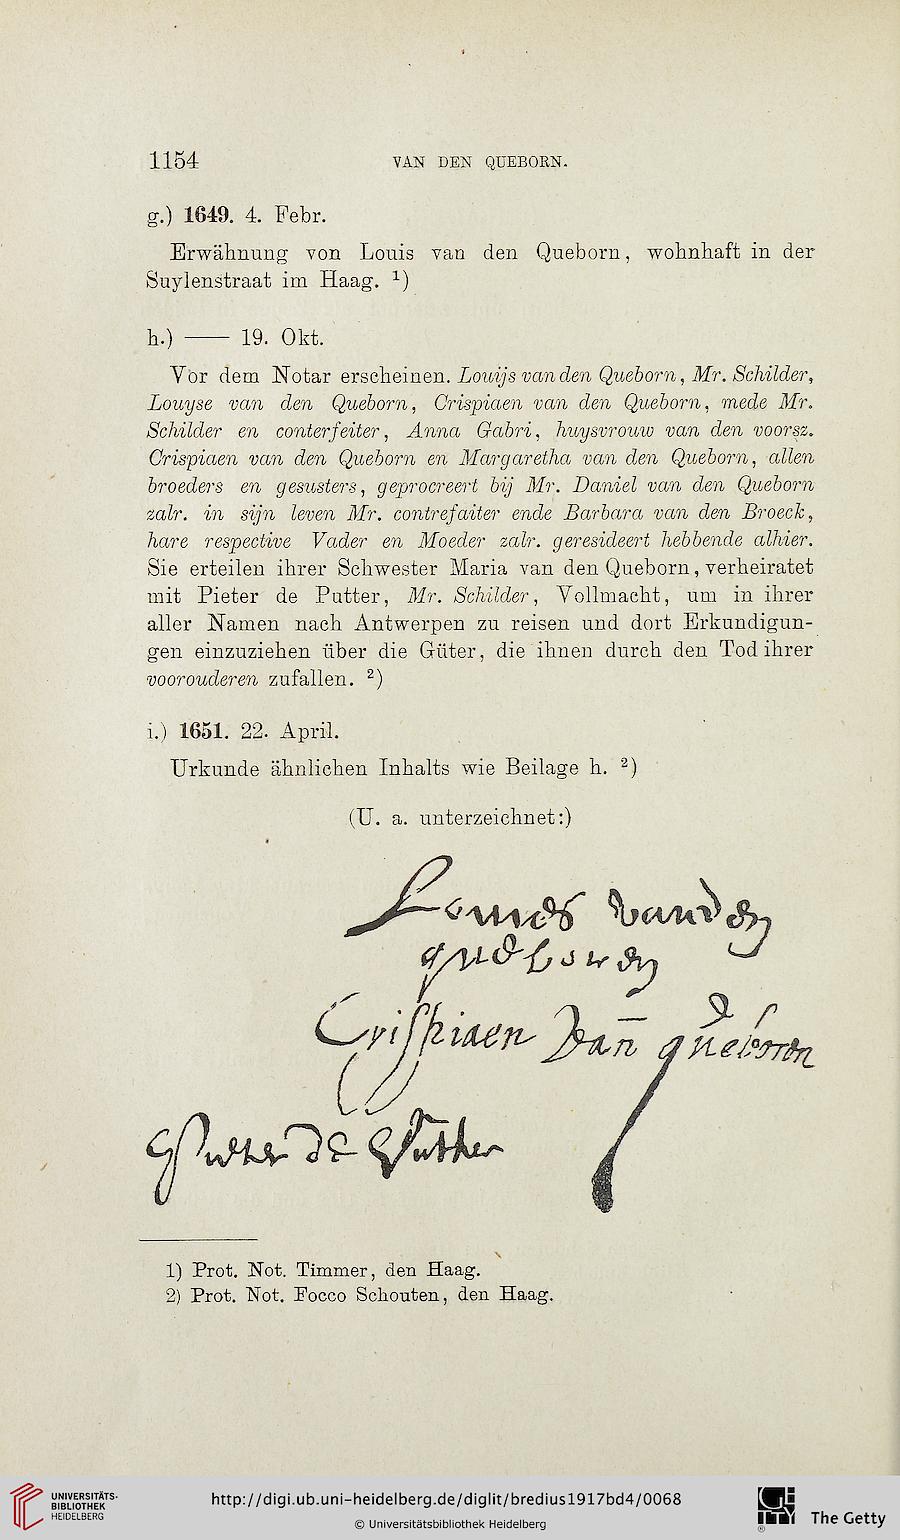 1154
VAN DEN QUEBORN.
g.) 1649. 4. Febr.
Erwähnung von Louis van den Queborn, wohnhaft in der
Suylenstraat im Haag. ¹)
h.) —— 19. Okt.
Vor dem Notar erscheinen. Louijs van den Queborn, Mr. Schilder,
Louyse van den Queborn, Crispiaen van den Queborn, mede Mr.
Schilder en conterfeiter, Anna Gabri, huysvrouw van den voorsz.
Crispiaen van den Queborn en Margaretha van den Queborn, allen
broeders en gesusters, geprocreert bij Mr. Daniel van den Queborn
zalr. in sijn leven Mr. contrefaiter ende Barbara van den Broeck,
hare respective Vader en Moeder zalr. geresideert hebbende alhier.
Sie erteilen ihrer Schwester Maria van den Queborn, verheiratet
mit Pieter de Putter, Mr. Schilder, Vollmacht, um in ihrer
aller Namen nach Antwerpen zu reisen und dort Erkundigun-
gen einzuziehen über die Güter, die ihnen durch den Tod ihrer
voorouderen zufallen. ²)
i.) 1651. 22. April.
Urkunde ähnlichen Inhalts wie Beilage h. ²)
(U. a. unterzeichnet:)
Louwes vanden
queboren
Crispiaen van queboren
Pieter de Putter
1) Prot. Not. Timmer, den Haag.
2) Prot. Not. Focco Schouten, den Haag.
UNIVERSITÄTS-
BIBLIOTHEK
HEIDELBERG
http://digi.ub.uni-heidelberg.de/diglit/bredius1917bd4/0068
© Universitätsbibliothek Heidelberg
The Getty